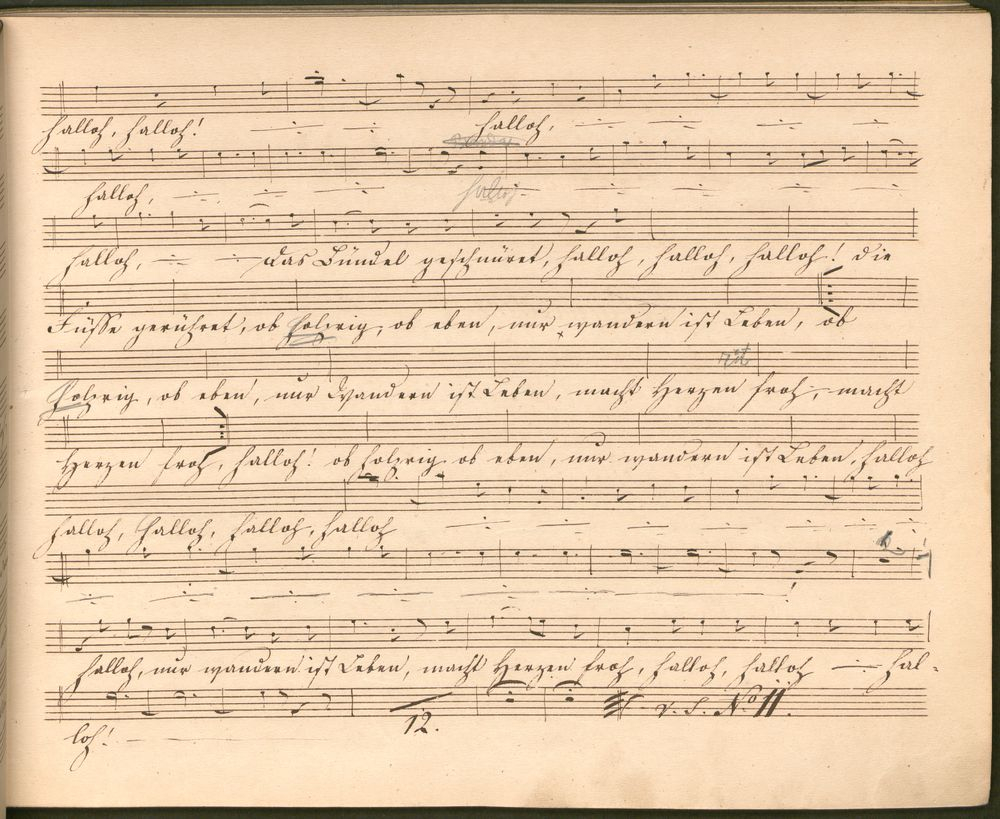 halloh, halloh! halloh,
halloh,
halloh, das Bündel geschnüret, halloh, halloh, halloh! die
Füsse gerühret, ob holprig, ob eben, nur wandern ist Leben, ob
rit
holprig, ob eben, nur Wandern ist Leben, macht Herzen froh, macht
Herzen froh, halloh! ob holprig ob eben, nur wandern ist Leben, halloh
halloh, halloh, halloh, halloh
halloh, nur wandern ist Leben, macht Herzen froh, halloh, halloh hal-
v. S. No 11.
loh! 12.